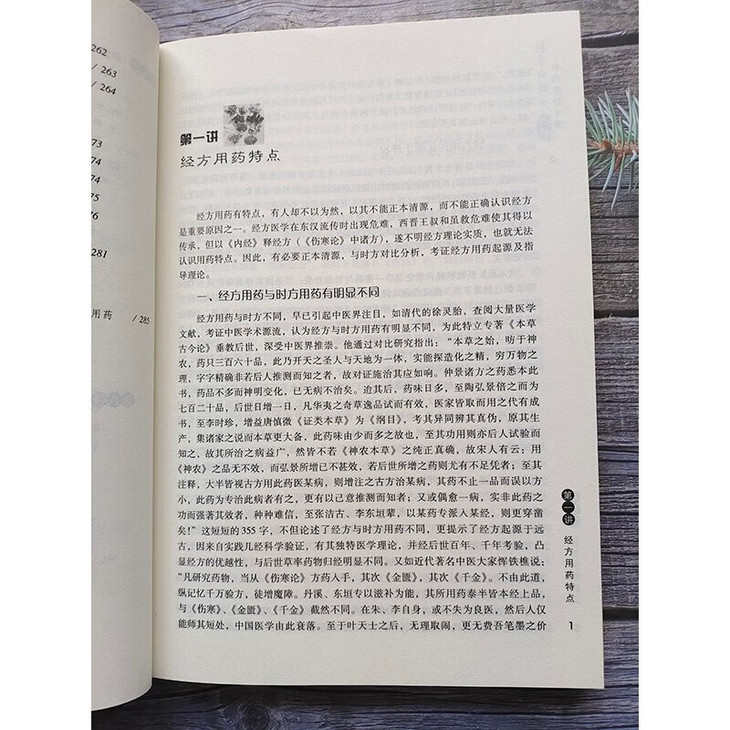 262
/ 263
/ 264
73
74
74
75
76
281
用药 / 285
第一讲
经方用药特点
经方用药有特点，有人却不以为然，以其不能正本清源，而不能正确认识经方
是重要原因之一。经方医学在东汉流传时出现危难，西晋王叔和虽救危难使其得以
传承，但以《内经》释经方（《伤寒论》中诸方），遂不明经方理论实质，也就无法
认识用药特点。因此，有必要正本清源，与时方对比分析，考证经方用药起源及指
导理论。
一、经方用药与时方用药有明显不同
经方用药与时方不同，早已引起中医界注目，如清代的徐灵胎，查阅大量医学
文献，考证中医学术源流，认为经方与时方用药有明显不同，为此特立专著《本草
古今论》垂教后世，深受中医界推崇。他通过对比研究指出：“本草之始，昉于神
农，药只三百六十品，此乃开天之圣人与天地为一体，实能探造化之精，穷万物之
理，字字精确非若后人推测而知之者，故对证施治其应如响。仲景诸方之药悉本此
书，药品不多而神明变化，已无病不治矣。迨其后，药味日多，至陶弘景倍之而为
七百二十品，后世日增一日，凡华夷之奇草逸品试而有效，医家皆取而用之代有成
书，至李时珍，增益唐慎微《证类本草》为《纲目》，考其异同辨其真伪，原其生
产，集诸家之说而本草更大备，此药味由少而多之故也，至其功用则亦后人试验而
知之，故其所治之病益广，然皆不若《神农本草》之纯正真确，故宋人有云：用
《神农》之品无不效，而弘景所增已不甚效，若后世所增之药则尤有不足凭者；至其
注释，大半皆视古方用此药医某病，则增注之古方治某病，其药不止一品而误以方
小，此药为专治此病者有之，更有以己意推测而知者；又或偶愈一病，实非此药之
功而强著其效者，种种难信，至张洁古、李东垣辈，以某药专派入某经，则更穿凿
矣！”这短短的 355 字，不但论述了经方与时方用药不同，更提示了经方起源于远
古，因来自实践几经科学验证，有其独特医学理论，并经后世百年、千年考验，凸
显经方的优越性，与后世草率药物归经明显不同。又如近代著名中医大家恽铁樵说：
“凡研究药物，当从《伤寒论》方药入手，其次《金匮》，其次《千金》。不由此道，
纵记忆千万验方，徒增魔障。丹溪、东垣专以滋补为能，其所用药泰半皆本经上品，
与《伤寒》、《金匮》、《千金》截然不同。在朱、李自身，或不失为良医，然后人仅
能师其短处，中国医学由此衰落。至于叶天士之后，无理取闹，更无费吾笔墨之价
第一讲
经方用药特点
1